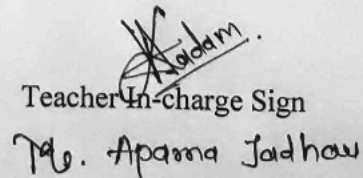 Kadam.
Teacher In-charge Sign
Aparna Jadhav